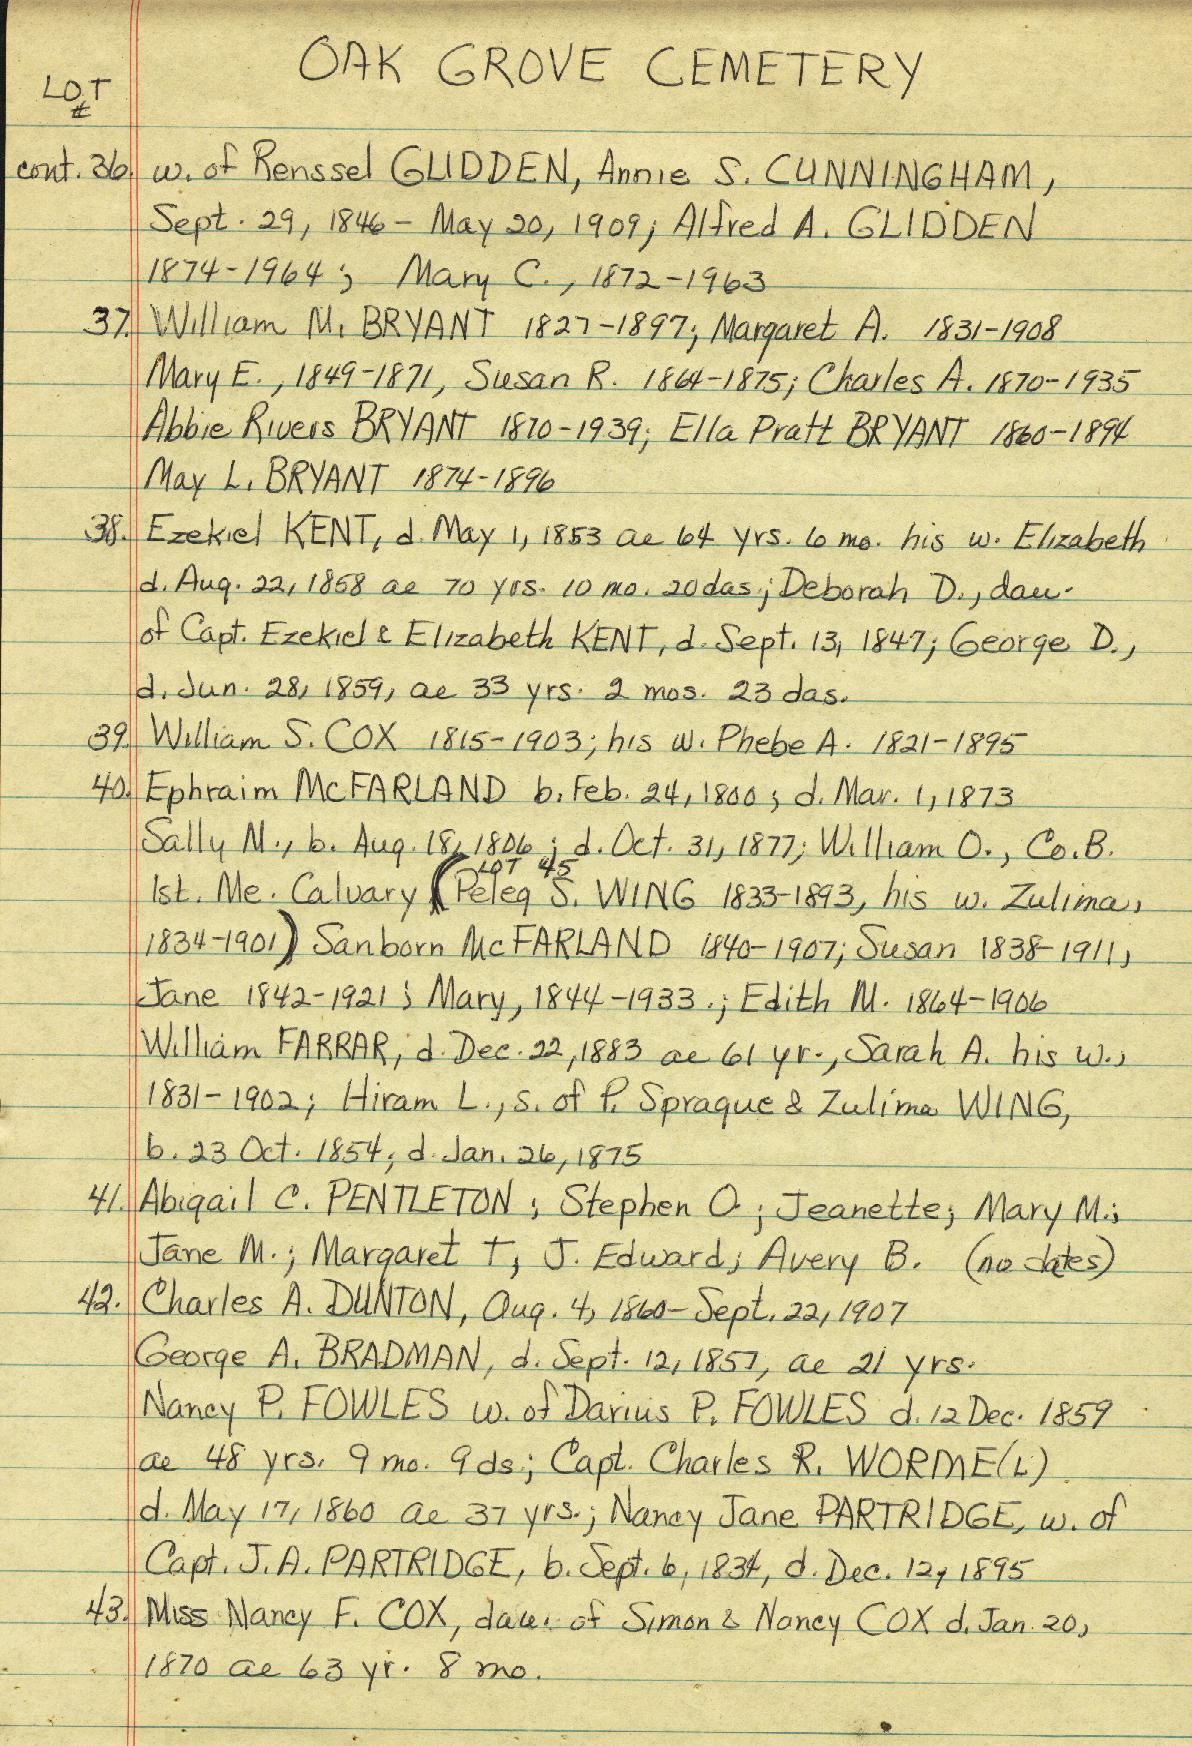 OAK GROVE CEMETERY
LOT
#
cont. 36. w. of Renssel GLIDDEN, Annie S. CUNNINGHAM,
Sept. 29, 1846 - May 20, 1909; Alfred A. GLIDDEN
1874-1964; Mary C., 1872-1963
37. William M. BRYANT 1827-1897; Margaret A. 1831-1908
Mary E., 1849-1871, Susan R. 1864-1875; Charles A. 1870-1935
Abbie Rivers BRYANT 1870-1939; Ella Pratt BRYANT 1860-1894
May L. BRYANT 1874-1896
38. Ezekiel KENT, d. May 1, 1853 ae 64 yrs. 6 mo. his w. Elizabeth
d. Aug. 22, 1858 ae 70 yrs. 10 mo. 20 das.; Deborah D., dau.
of Capt. Ezekiel & Elizabeth KENT, d. Sept. 13, 1847; George D.,
d. Jun. 28, 1859, ae 33 yrs. 2 mos. 23 das.
39. William S. COX 1815-1903; his w. Phebe A. 1821-1895
40. Ephraim McFARLAND b. Feb. 24, 1800; d. Mar. 1, 1873
Sally M., b. Aug. 18, 1806; d. Oct. 31, 1877; William O., Co. B.
LOT 45
1st. Me. Calvary (Peleg S. WING 1833-1893, his w. Zulima,
1834-1901) Sanborn McFARLAND 1840-1907; Susan 1838-1911,
Jane 1842-1921; Mary, 1844-1933.; Edith M. 1864-1906
William FARRAR, d. Dec. 22, 1883 ae 61 yr., Sarah A. his w.,
1831-1902; Hiram L., s. of P. Sprague & Zulima WING,
b. 23 Oct. 1854; d. Jan. 26, 1875
41. Abigail C. PENTLETON; Stephen O; Jeanette; Mary M.;
Jane M.; Margaret T; J. Edward; Avery B. (no dates)
42. Charles A. DUNTON, Aug. 4, 1860-Sept. 22, 1907
George A. BRADMAN, d. Sept. 12, 1857, ae 21 yrs.
Nancy P. FOWLES w. of Darius P. FOWLES d. 12 Dec. 1859
ae 48 yrs. 9 mo. 9 ds.; Capt. Charles R. WORME(L)
d. May 17, 1860 ae 37 yrs.; Nancy Jane PARTRIDGE, w. of
Capt. J.A. PARTRIDGE, b. Sept. 6, 1834, d. Dec. 12, 1895
43. Miss Nancy F. COX, dau. of Simon & Nancy COX d. Jan. 20,
1870 ae 63 yr. 8 mo.